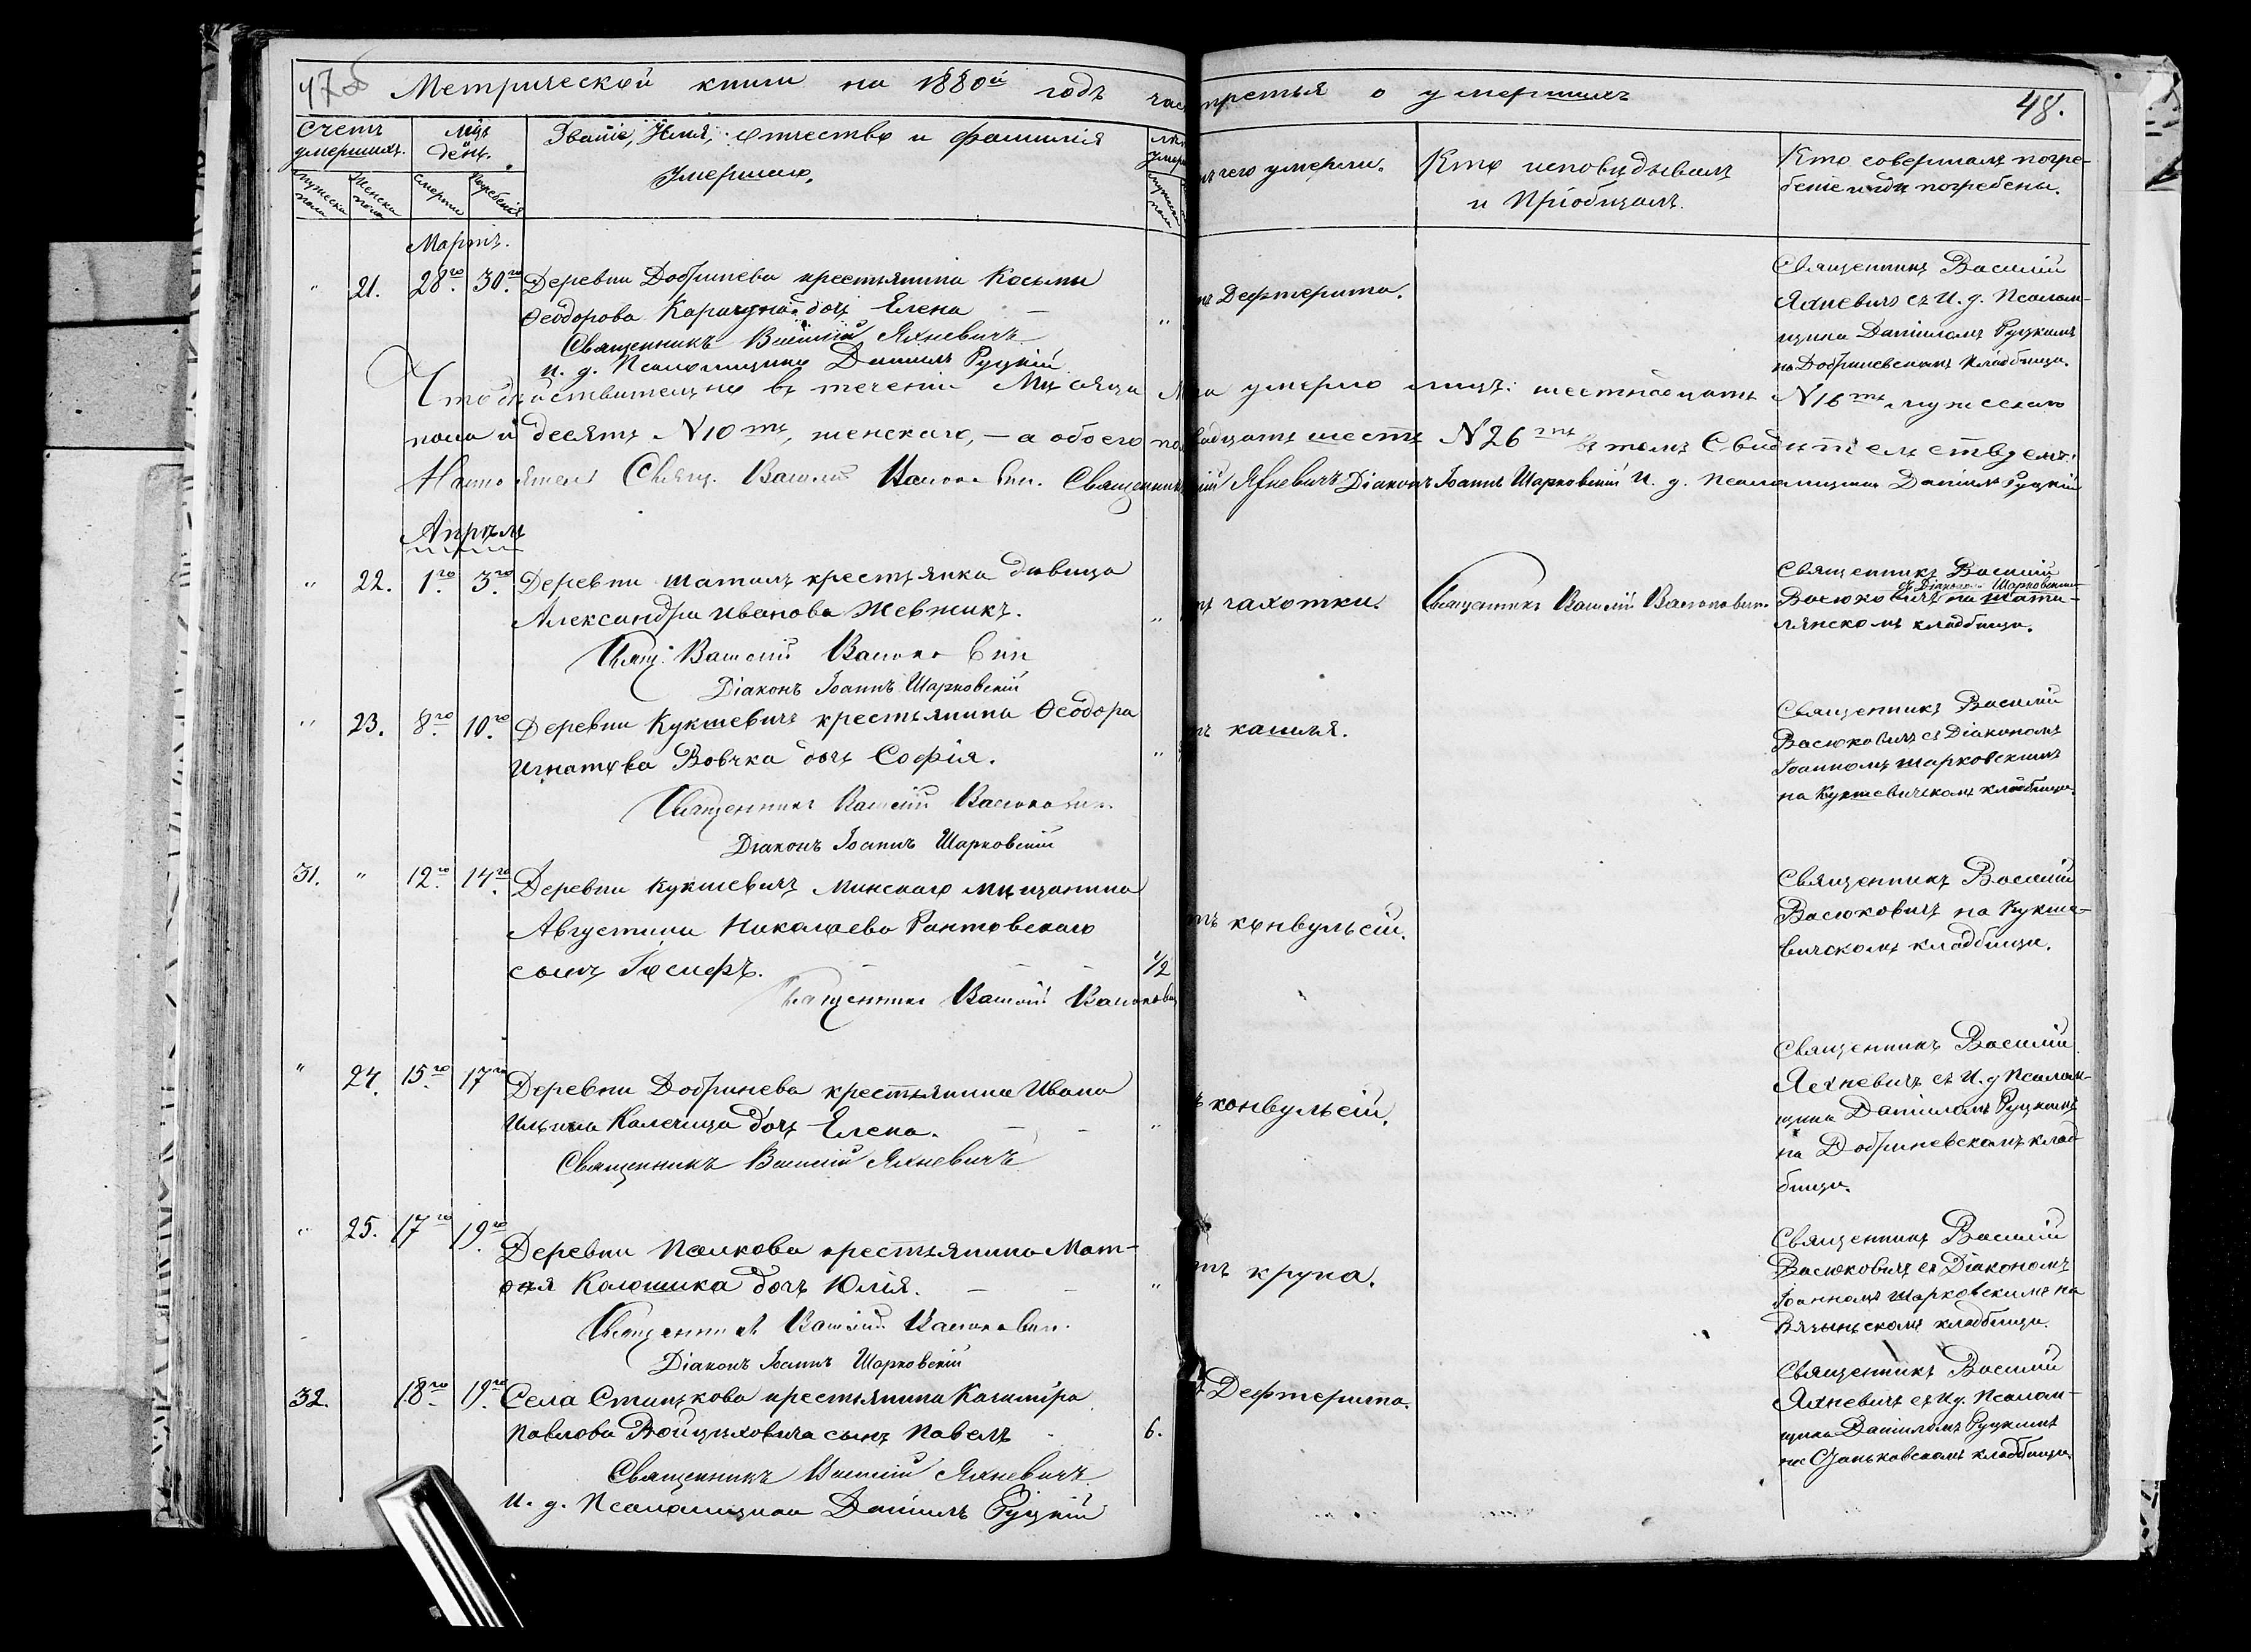 47об Метрической книги на 1880й годъ час третья о умершихъ 48.
Счетъ умершихъ.
Мужеска пола
Женска пола
Мцъ и день.
Смерти
Погребенія
Званіе, Имя, отчество и фамилія
умершаго.
Лѣт
умер
мужеск
пола
чего умерли.
Кто исповѣдывалъ
и пріобщалъ.
Кто совершалъ погре-
беніе и гдѣ погребены.
Мартъ.
" 21. 28го 30го Деревни Добринева крестьянина Косьмы
Ѳеодорова дочь Елена "
Священникъ Василій Яхневичъ
И. д. Псаломщика Даніилъ Руцкій
Дефтерита.
Священникъ Василій
Яхневичъ съ И. д. Псалом-
щика Даніиломъ Руцкимъ
на Добриневскомъ кладбищѣ.
Что дѣйствительно въ теченіи Мѣсяца умерло лицъ: шестнадцать N16ть мужескаго
пола и десять N10ть, женскаго, — а обоего по двадцать шесть N26ть въ томъ Свидѣтельствуемъ:
Настоятель Свящ. Василій Васюкович. Священник Яхневичъ Діаконъ Іоаннъ Шарковскій И. д. Псаломщика Даніилъ Руцкій
Апрѣль
" 22. 1го 3го Деревни Шатилъ крестьянка дѣвица
Александра Иванова Жевжикъ. "
Свящ: Василій Васюкович
Діаконъ Іоаннъ Шарковскій
чахотки.
Священникъ Василій Васюкович.
Священникъ Василій
съ Діаконом Шарковским
Васюковичъ на Шати-
лянскомъ кладбищѣ.
" 23. 8го 10го Деревни Кукшевичъ крестьянина Ѳеодора
Игнатова Вовчка дочь Софія. "
Священникъ Василій Васюкович.
Діаконъ Іоаннъ Шарковскій
кашля.
Священникъ Василій
Васюковичъ съ Діакономъ
Іоанномъ Шарковскимъ
на Кукшевичскомъ кладбищѣ.
31. " 12го 14го Деревни Кукшевичъ Минскаго мѣщанина
Августина Николаева Рантовскаго
сынъ Іосифъ. 1/2
Священникъ Василій Васюкович
тъ конвульсій.
Священникъ Василій
Васюковичъ на Кукше-
вичскомъ кладбищѣ.
" 24. 15го 17го Деревни Добринева крестьянина Ивана
Ильина Калечица дочь Елена. "
Священникъ Василій Яхневичъ
ъ конвульсій.
Священникъ Василій
Яхневичъ съ И. д Псалом-
щика Даніиломъ Руцкимъ
на Добриневскомъ клад-
бищѣ.
" 25. 17го 19го Деревни Полкова крестьянина Мат-
ѳея Калошика дочь Юлія. "
Священникъ Василій Васюкович.
Діаконъ Іоаннъ Шарковскій
тъ крупа.
Священникъ Василій
Васюковичъ съ Діакономъ
Іоанномъ Шарковскимъ на
кладбищѣ.
32. 18го 19го Села Станькова крестьянина Казиміра
Павлова Войцѣховича сынъ Павелъ 6.
Священникъ Василій Яхневичъ
И. д. Псаломщика Даніилъ Руцкій
ъ Дефтерита.
Священникъ Василій
Яхневичъ съ И д. Псалом-
щика Даніиломъ Руцкимъ
на Станьковскомъ кладбищѣ.